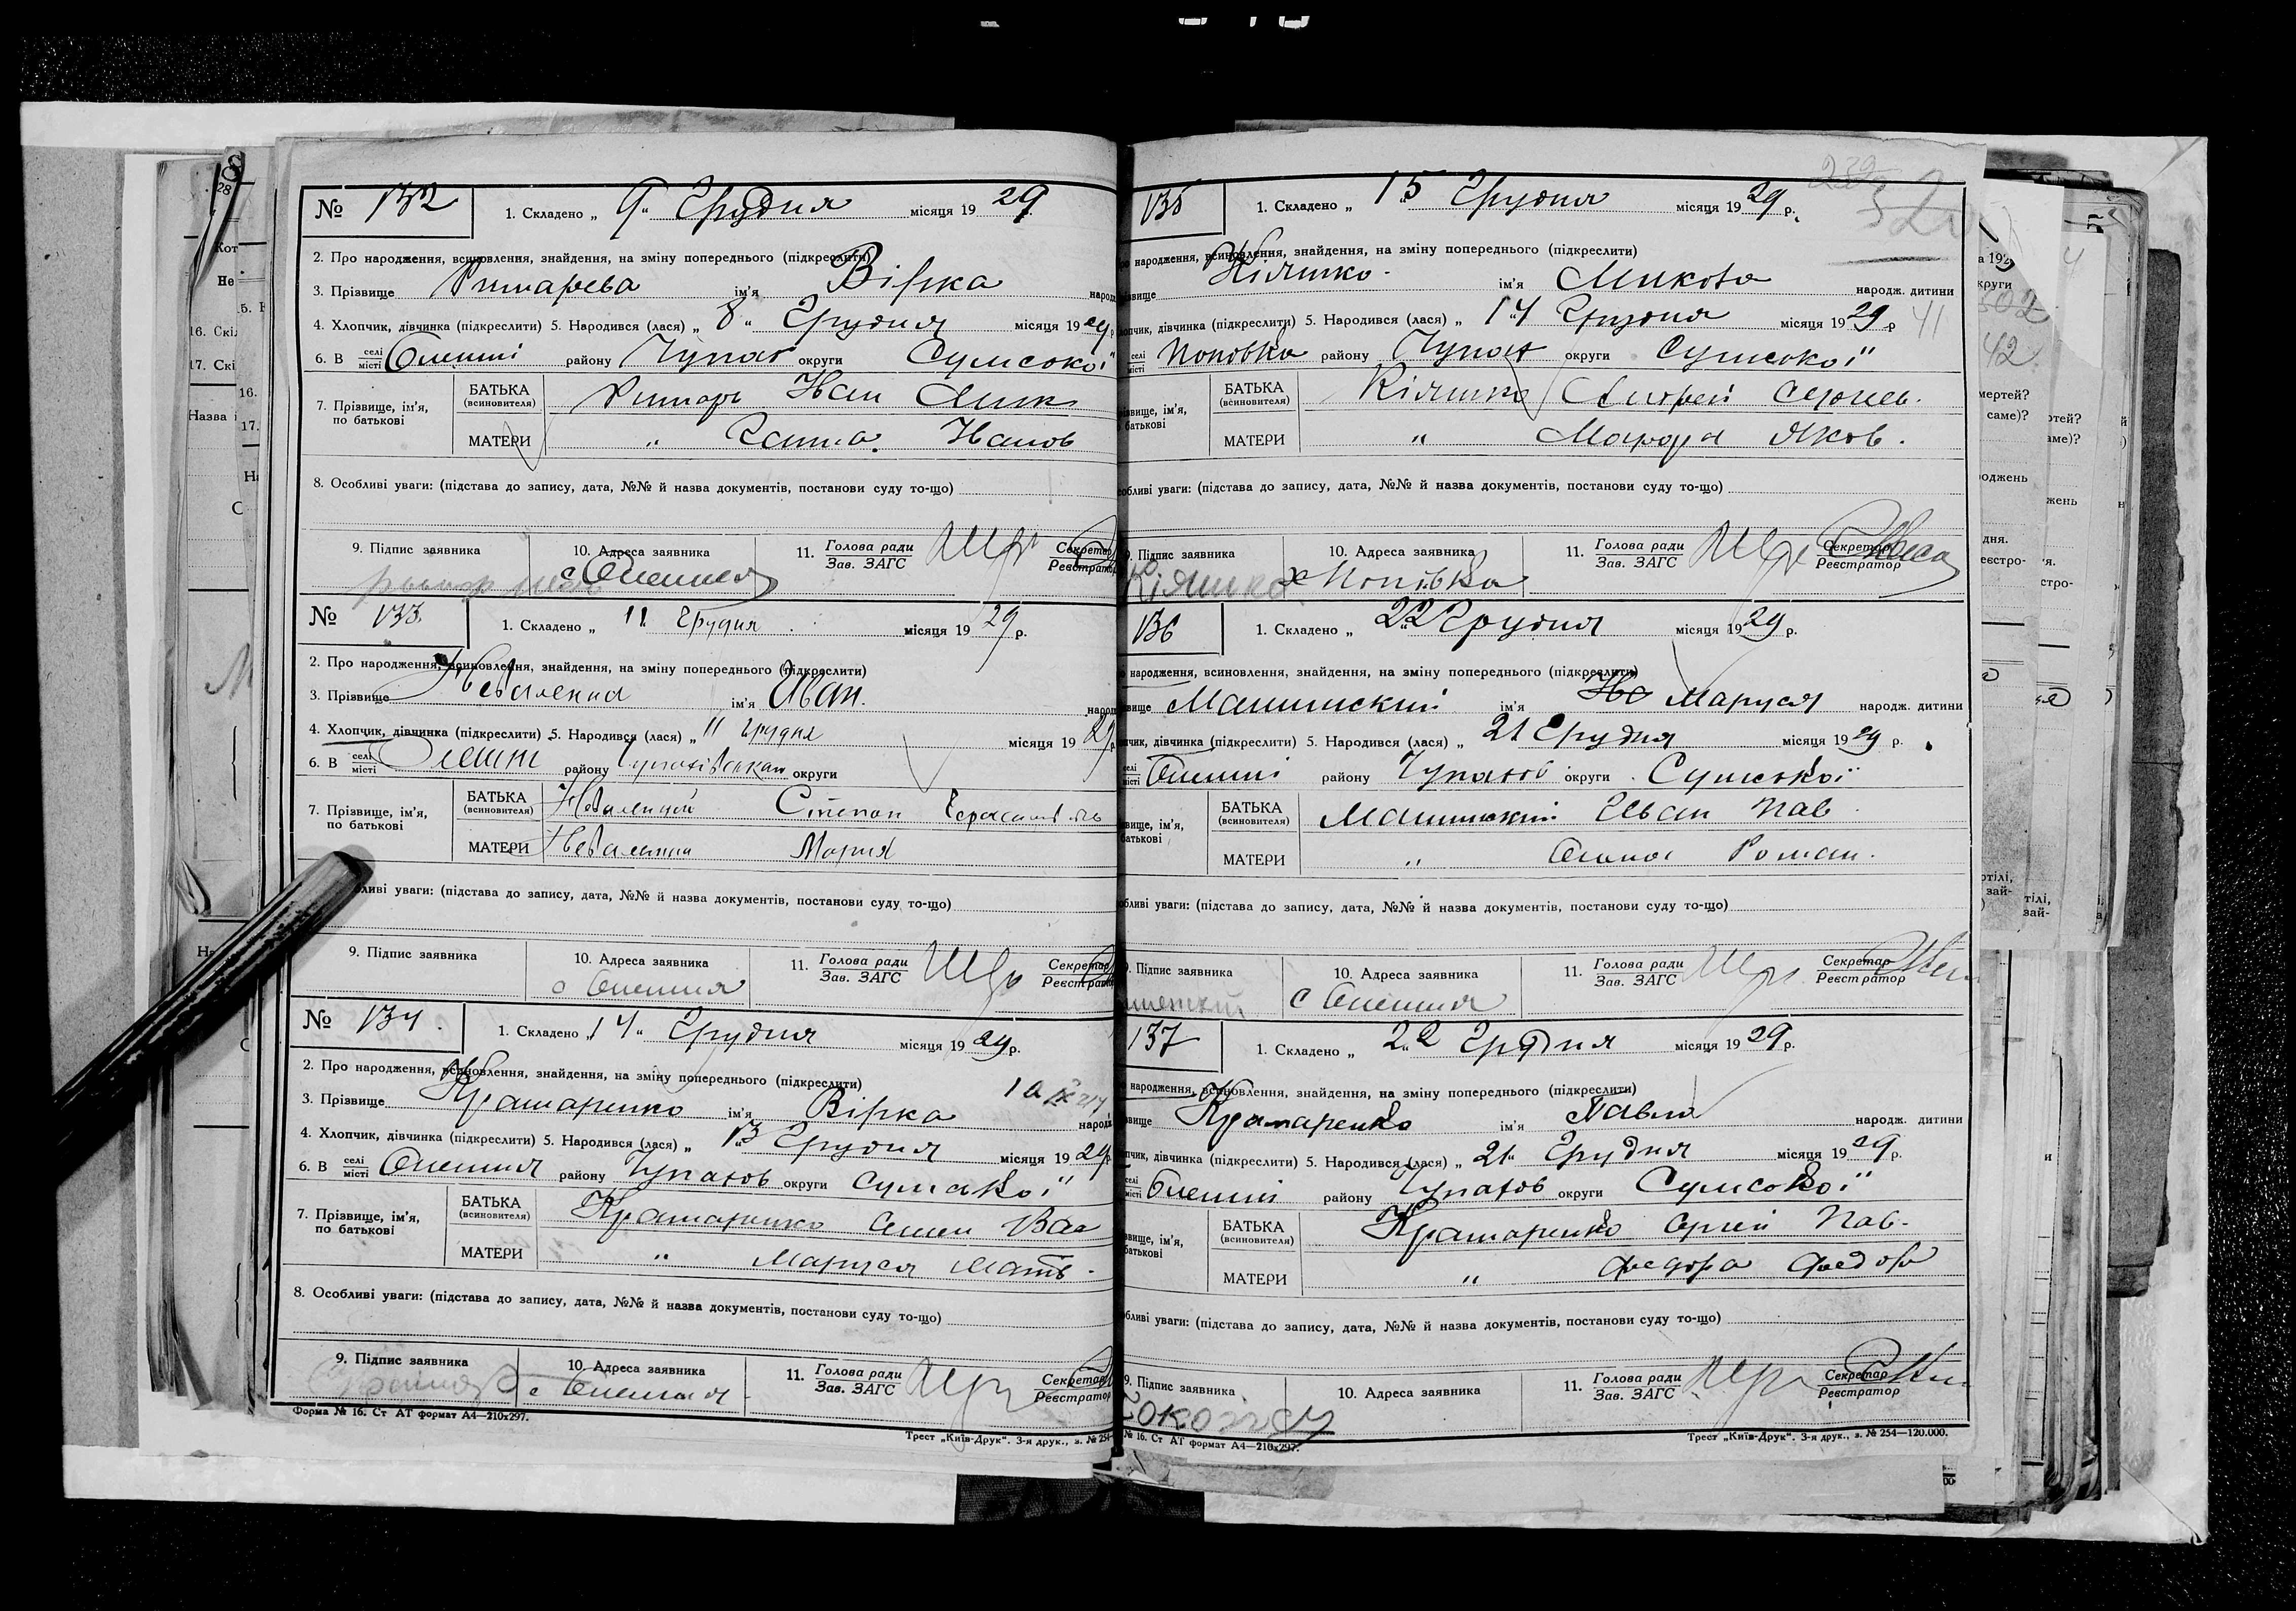 № 132 1. Складено „ 9 " Грудня місяця 19 29 р.
2. Про народження, всиновлення, знайдення, на зміну попереднього (підкреслити)
3. Прізвище Римарева ім'я Вірка народ
4. Хлопчик, дівчинка (підкреслити) 5. Народився (лася) „ 8 " Грудня місяця 19 29 р
6. В селі місті Олешні району Чупах округи Сумської
7. Прізвище, ім'я, по батькові
БАТЬКА (всиновителя) Римарь Иван
МАТЕРИ " Ганна Иванов
8. Особливі уваги: (підстава до запису, дата, №№ й назва документів, постанови суду то-що)
9. Підпис заявника 10. Адреса заявника 11. Голова ради Зав. ЗАГС Секретар Реєстратор
с Олешня
№ 133 1. Складено „ 11 Грудня місяця 19 29 р.
2. Про народження, всиновлення, знайдення, на зміну попереднього (підкреслити)
3. Прізвище ім'я Иван. народ
4. Хлопчик, дівчинка (підкреслити) 5. Народився (лася) „ 11 Грудня місяця 19 29 р
6. В селі місті Олешні району округи
7. Прізвище, ім'я, по батькові
БАТЬКА (всиновителя) Степан
МАТЕРИ Мария
ливі уваги: (підстава до запису, дата, №№ й назва документів, постанови суду то-що)
9. Підпис заявника 10. Адреса заявника 11. Голова ради Зав. ЗАГС Секретар Реєстратор
с Олешня
№ 134. 1. Складено „ 14 " Грудня місяця 19 29 р.
2. Про народження, всиновлення, знайдення, на зміну попереднього (підкреслити)
3. Прізвище Крамаренко ім'я Вірка народ
4. Хлопчик, дівчинка (підкреслити) 5. Народився (лася) „ 13 Грудня місяця 19 29 р
6. В селі місті Олешня району Чупахов округи Сумської
7. Прізвище, ім'я, по батькові
БАТЬКА (всиновителя) Крамаренко Семен Вас
МАТЕРИ " Маруся Матв.
8. Особливі уваги: (підстава до запису, дата, №№ й назва документів, постанови суду то-що)
9. Підпис заявника 10. Адреса заявника 11. Голова ради Зав. ЗАГС Секретар Реєстратор
с Олешня
Форма № 16. Ст АТ формат А4—210х297.
Трест „Київ-Друк". 3-я друк., з. № 254
135 1. Складено „ 15 Грудня місяця 19 29 р.
народження, всиновлення, знайдення, на зміну попереднього (підкреслити)
звище Кіяшко ім'я Микола народж. дитини
опчик, дівчинка (підкреслити) 5. Народився (лася) „ 14 Грудня місяця 19 29 р 41
селі місті Поповка району Чупах округи Сумської
звище, ім'я, батькові
БАТЬКА (всиновителя) Кіяшко Андрей
МАТЕРИ " Яков.
обливі уваги: (підстава до запису, дата, №№ й назва документів, постанови суду то-що)
9. Підпис заявника 10. Адреса заявника 11. Голова ради Зав. ЗАГС Секретар Реєстратор
Кіяшко х Попівка
136 1. Складено „ 22 Грудня місяця 19 29 р.
народження, всиновлення, знайдення, на зміну попереднього (підкреслити)
звище ім'я Маруся народж. дитини
пчик, дівчинка (підкреслити) 5. Народився (лася) „ 21 Грудня місяця 19 29 р.
селі місті Олешні району Чупахов округи Сумської
звище, ім'я, батькові
БАТЬКА (всиновителя) Иван Пав
МАТЕРИ " Роман.
обливі уваги: (підстава до запису, дата, №№ й назва документів, постанови суду то-що)
9. Підпис заявника 10. Адреса заявника 11. Голова ради Зав. ЗАГС Секретар Реєстратор
с Олешня
137 1. Складено „ 22 Грудня місяця 19 29 р.
народження, всиновлення, знайдення, на зміну попереднього (підкреслити)
звище Крамаренко ім'я Павло народж. дитини
пчик, дівчинка (підкреслити) 5. Народився (лася) „ 21 " Грудня місяця 19 29 р.
селі місті Олешні району Чупахов округи Сумської
звище, ім'я, батькові
БАТЬКА (всиновителя) Крамаренко Сергей Пав.
МАТЕРИ " Федора Федор
обливі уваги: (підстава до запису, дата, №№ й назва документів, постанови суду то-що)
9. Підпис заявника 10. Адреса заявника 11. Голова ради Зав. ЗАГС Секретар Реєстратор
№ 16. Ст АТ формат А4—210х297.
Трест „Київ-Друк". 3-я друк., з. № 254—120.000.